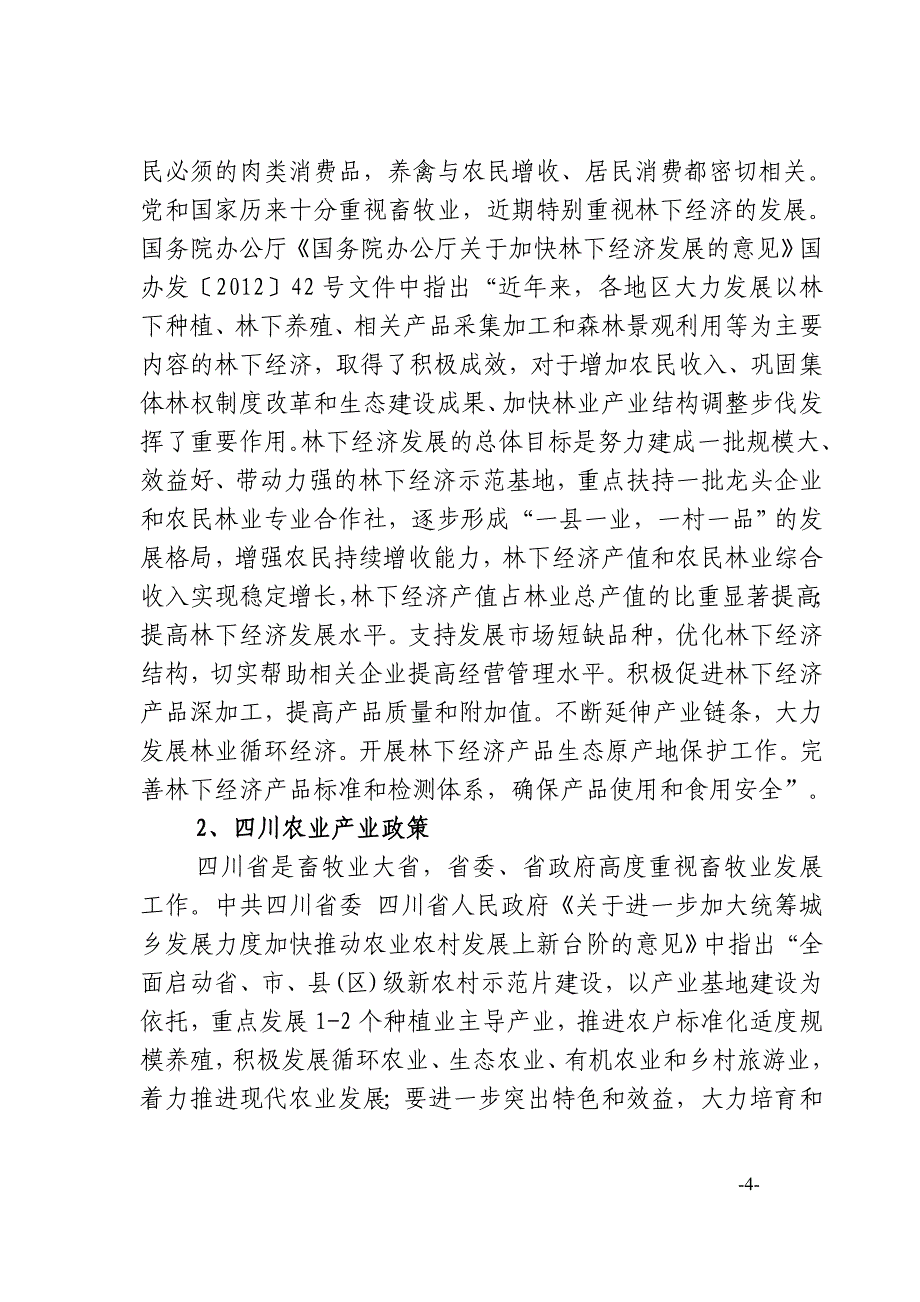 民必须的肉类消费品，养禽与农民增收、居民消费都密切相关。
党和国家历来十分重视畜牧业，近期特别重视林下经济的发展。
国务院办公厅《国务院办公厅关于加快林下经济发展的意见》国
办发〔2012〕42 号文件中指出“近年来，各地区大力发展以林
下种植、林下养殖、相关产品采集加工和森林景观利用等为主要
内容的林下经济，取得了积极成效，对于增加农民收入、巩固集
体林权制度改革和生态建设成果、加快林业产业结构调整步伐发
挥了重要作用。林下经济发展的总体目标是努力建成一批规模大、
效益好、带动力强的林下经济示范基地，重点扶持一批龙头企业
和农民林业专业合作社，逐步形成“一县一业，一村一品”的发
展格局，增强农民持续增收能力，林下经济产值和农民林业综合
收入实现稳定增长，林下经济产值占林业总产值的比重显著提高；
提高林下经济发展水平。支持发展市场短缺品种，优化林下经济
结构，切实帮助相关企业提高经营管理水平。积极促进林下经济
产品深加工，提高产品质量和附加值。不断延伸产业链条，大力
发展林业循环经济。开展林下经济产品生态原产地保护工作。完
善林下经济产品标准和检测体系，确保产品使用和食用安全”。
2、四川农业产业政策
四川省是畜牧业大省，省委、省政府高度重视畜牧业发展
工作。中共四川省委 四川省人民政府《关于进一步加大统筹城
乡发展力度加快推动农业农村发展上新台阶的意见》中指出“全
面启动省、市、县(区)级新农村示范片建设，以产业基地建设为
依托，重点发展 1-2 个种植业主导产业，推进农户标准化适度规
模养殖，积极发展循环农业、生态农业、有机农业和乡村旅游业，
着力推进现代农业发展；要进一步突出特色和效益，大力培育和
-4-